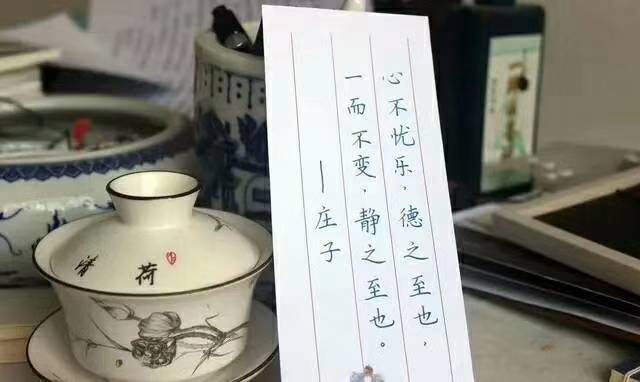 心不忧乐，德之至也，
一而不变，静之至也。
—庄子
荷